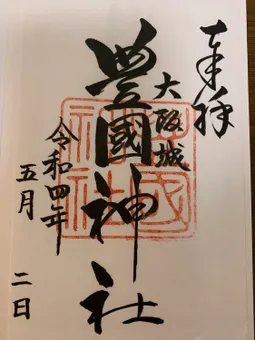 奉拝
大阪城
豊國神社
令和四年
五月
二日